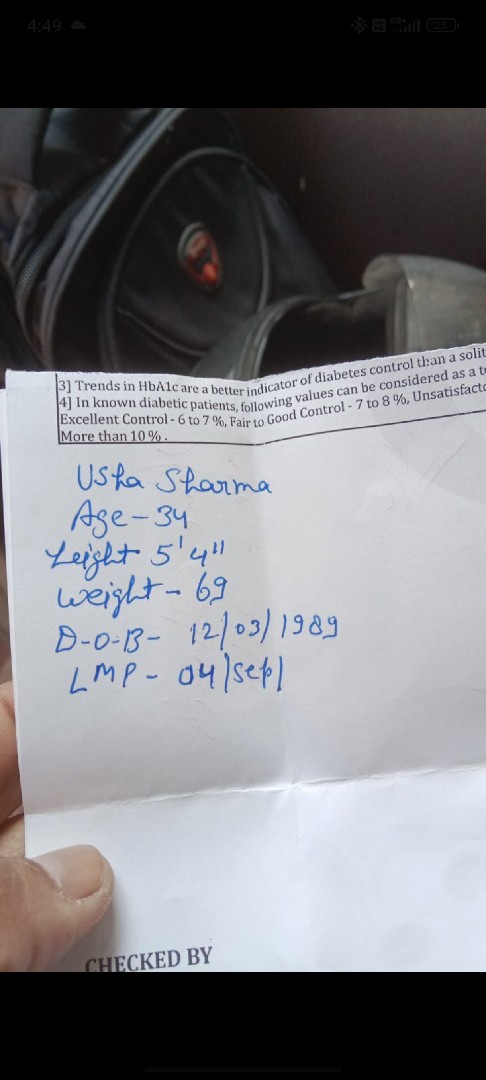 4:49
3] Trends in HbA1c are a better indicator of diabetes control than a solit
4] In known diabetic patients, following values can be considered as a t
Excellent Control - 6 to 7 %, Fair to Good Control - 7 to 8 %, Unsatisfacto
More than 10 % .
Usha Sharma
Age - 34
Height 5'4"
Weight - 69
D-O-B - 12/03/1989
LMP - 04/Sep/
CHECKED BY